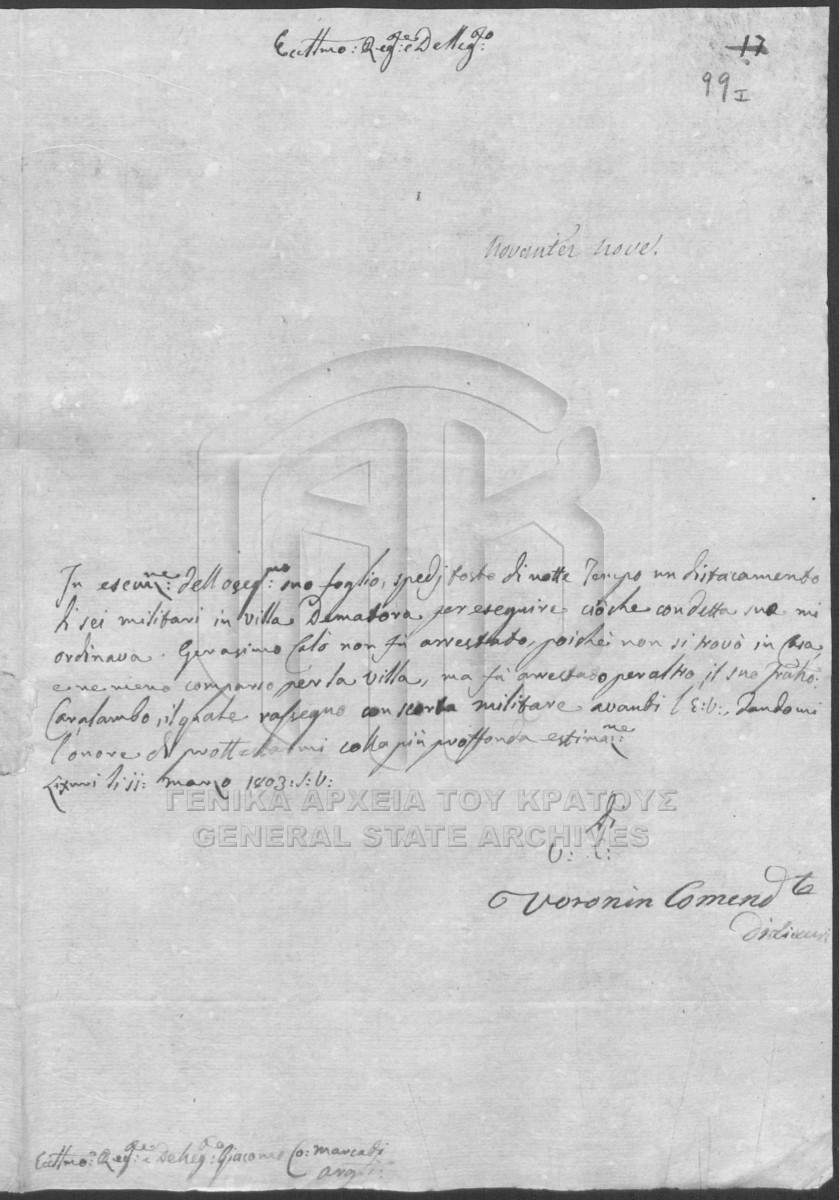 Eccttmo: Regge: e Dellegto:
17
99 I
Novanter Nove!
In esecuzne: dell osseqmo: suo foglio, spedj tosto di notte Tempo un distacamento
di sei militari in villa Damatora per eseguire cioche condetta sua mi
ordinava. Gerasimo Calò non fu arrestato, poichè non si trovò in Casa,
e ne meno comparso per la Villa, ma fù arrestado per altro il suo Frattō:
Caralambo, il quale rassegno con scorta militare avanti l'E:V:, dandomi
l'onore di prottestarmi colla più proffonda estimazne:
Lixuri li 11: marzo 1803: S:V:
Di
V: E:
Voronin Comendte
di Lixuri
ΓΕΝΙΚΑ ΑΡΧΕΙΑ ΤΟΥ ΚΡΑΤΟΥΣ
GENERAL STATE ARCHIVES
Eccttmo: Regge: e Dellegto: Giacomo Co: Marcadi
Argli: